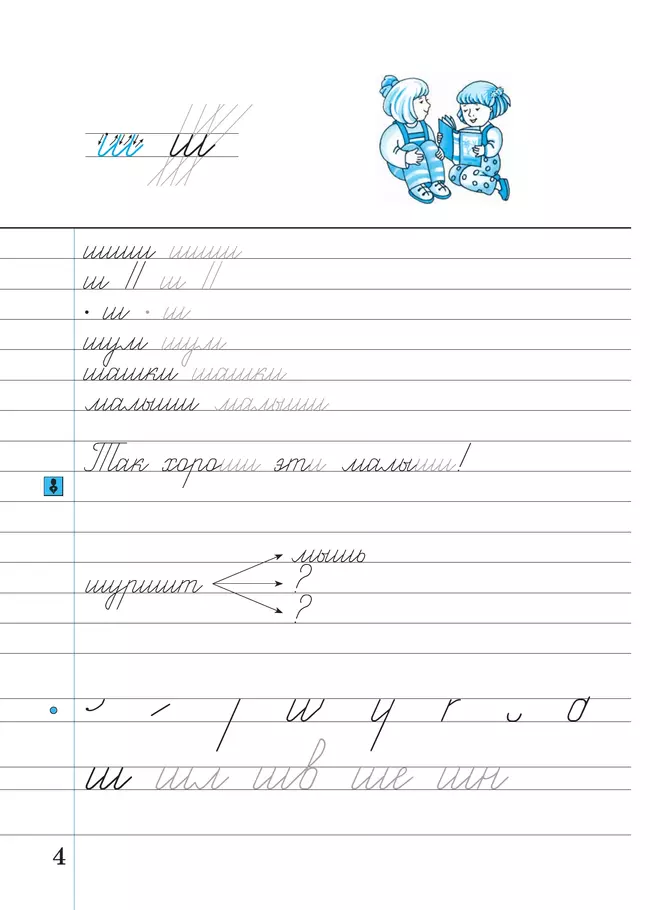 ш ш
шшшш шшшш
ш || ш ||
· ш · ш
шум шум
шашки шашки
малыши малыши
Так хороши эти малыши!
мышь
шуршит ?
?
ш шл шв ше шн
4